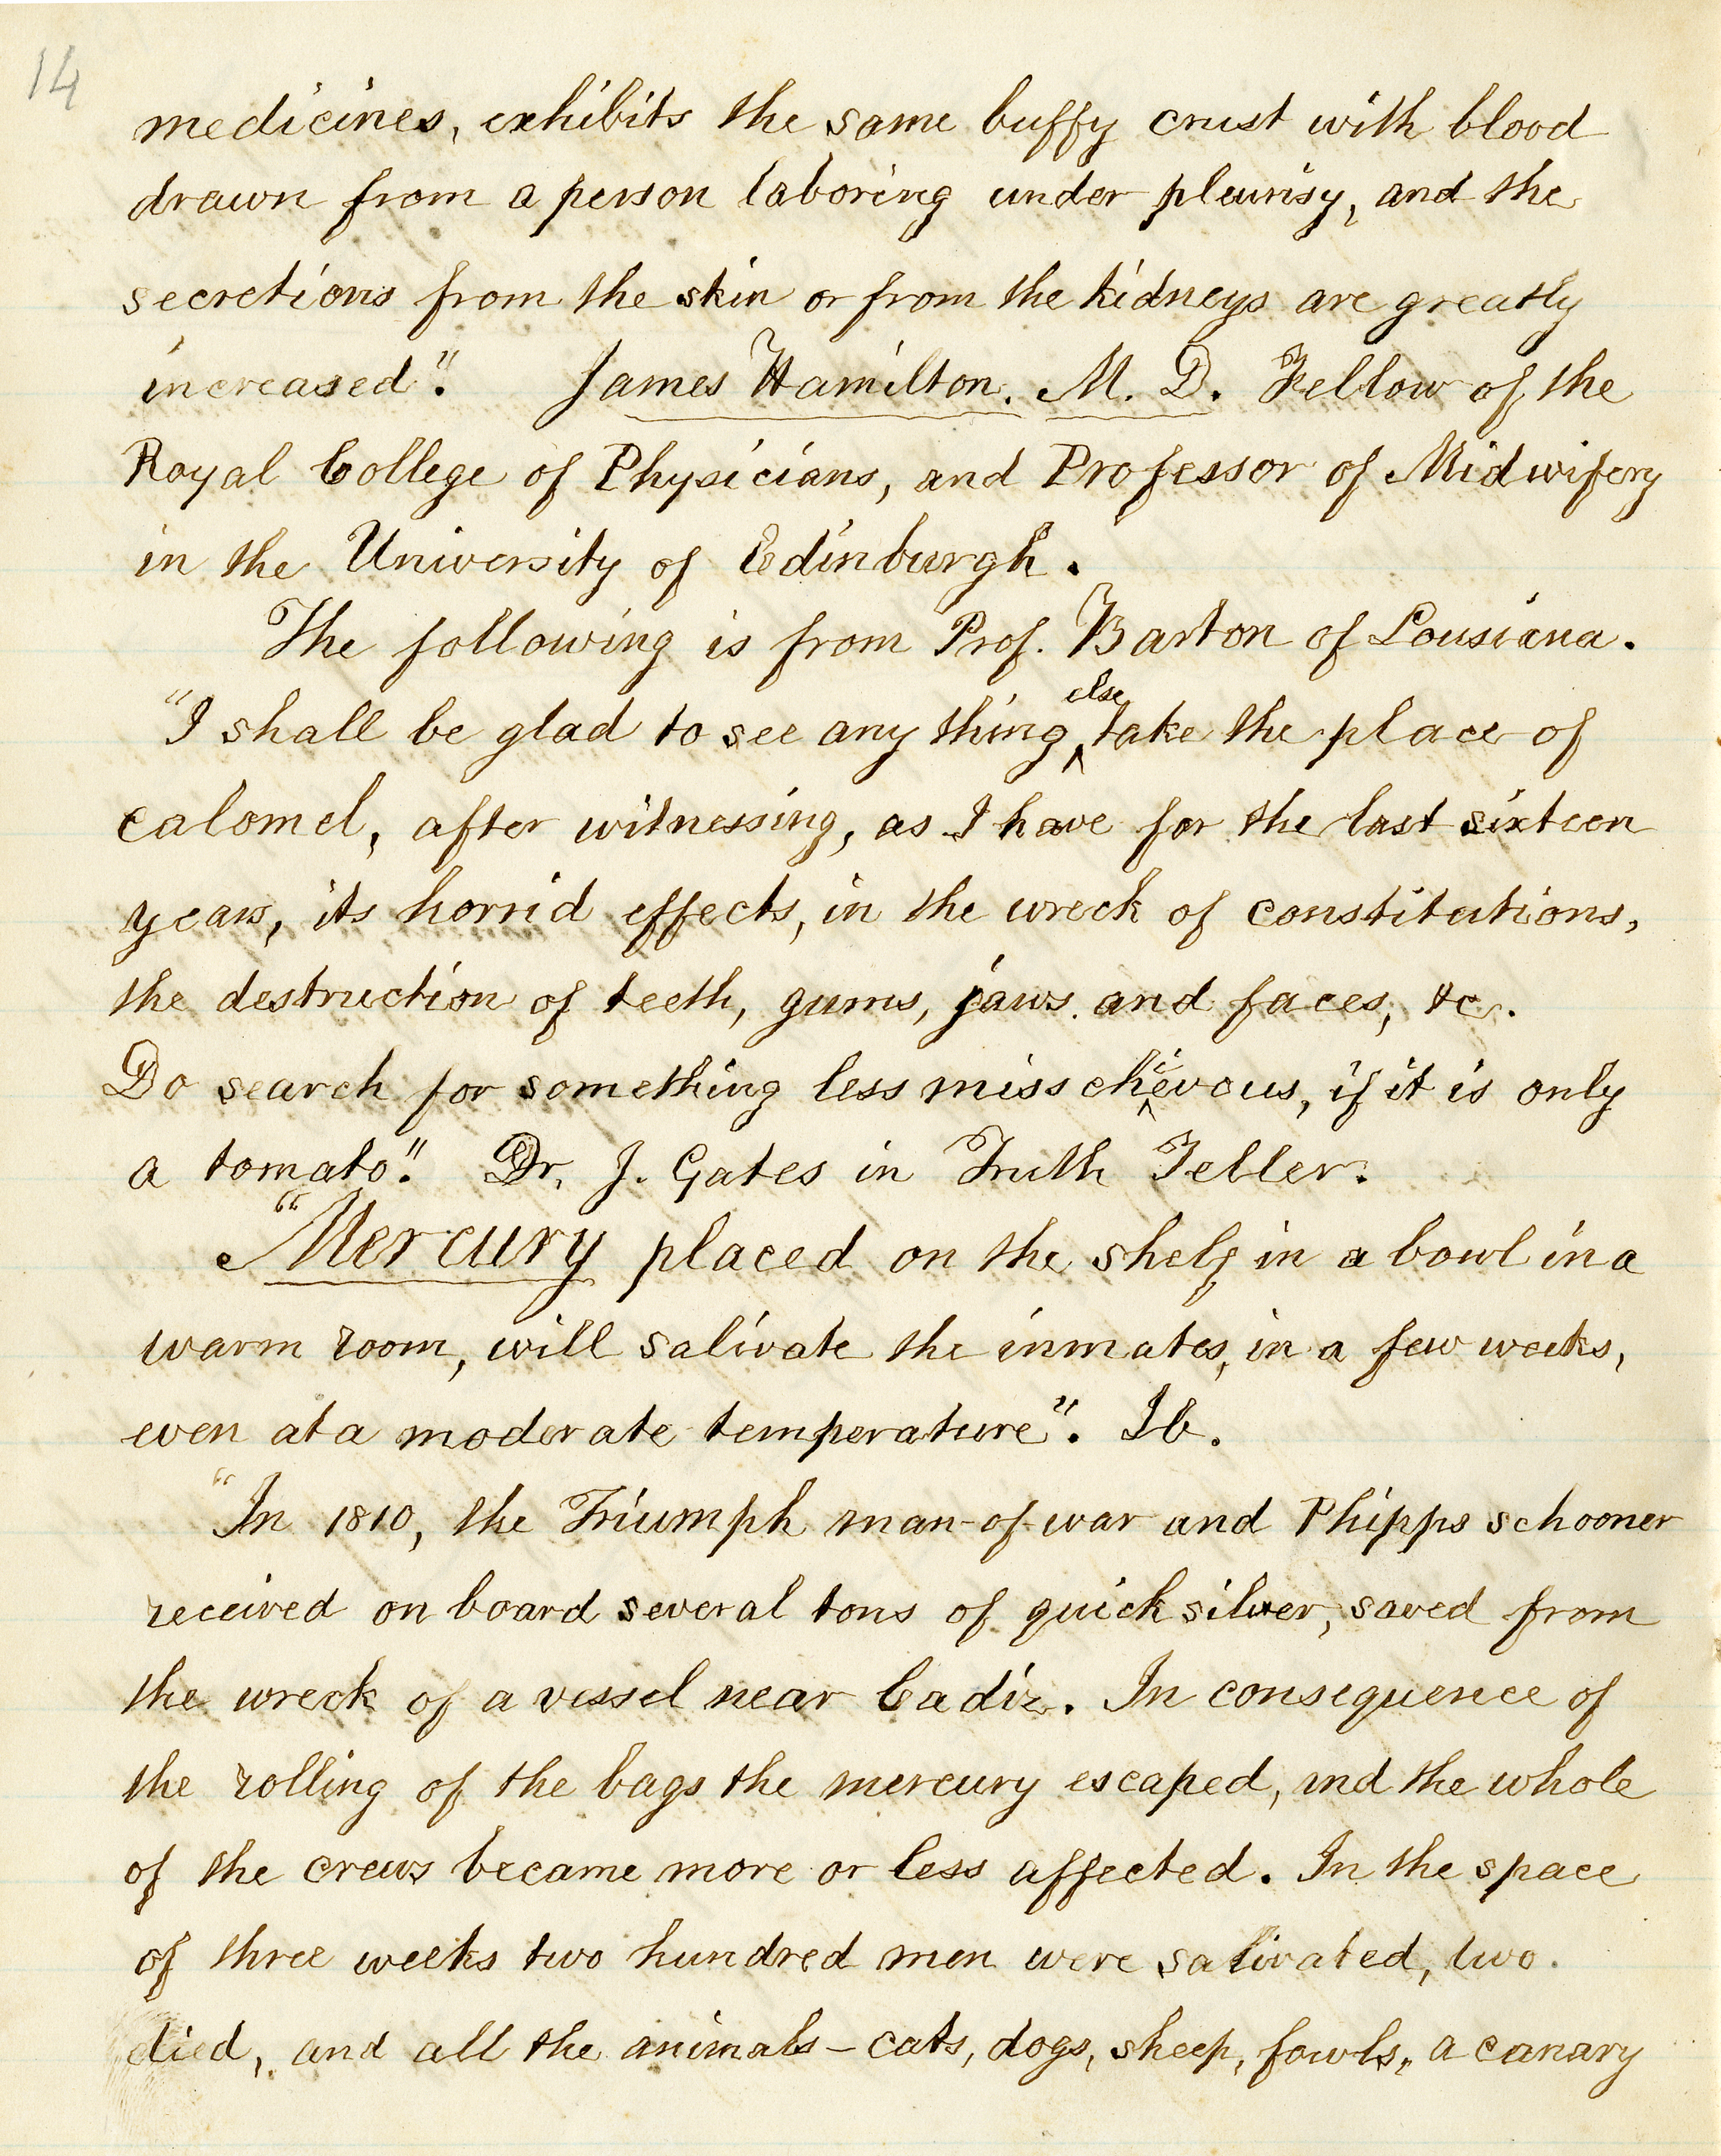 14
medicines, exhibits the same buffy crust with blood
drawn from a person laboring under pleurisy, and the
secretions from the skin or from the kidneys are greatly
increased". James Hamilton. M. D. Fellow of the
Royal College of Physicians, and Professor of Midwifery
in the University of Edinburgh.
The following is from Prof. Barton of Lousiana.
"I shall be glad to see any thing else take the place of
calomel, after witnessing, as I have for the last sixteen
years, its horrid effects, in the wreck of constitutions,
the destruction of teeth, gums, jaws and faces, &c.
Do search for something less misschievous, if it is only
a tomato". Dr. J. Gates in Truth Teller.
"Mercury placed on the shelf in a bowl in a
warm room, will salivate the inmates, in a few weeks,
even at a moderate temperature". Ib.
"In 1810, the Triumph man-of-war and Phipps schooner
received on board several tons of quick silver, saved from
the wreck of a vessel near Cadiz. In consequence of
the rolling of the bags the mercury escaped, and the whole
of the crews became more or less affected. In the space
of three weeks two hundred men were salivated, two
died, and all the animals - cats, dogs, sheep, fowls, a canary